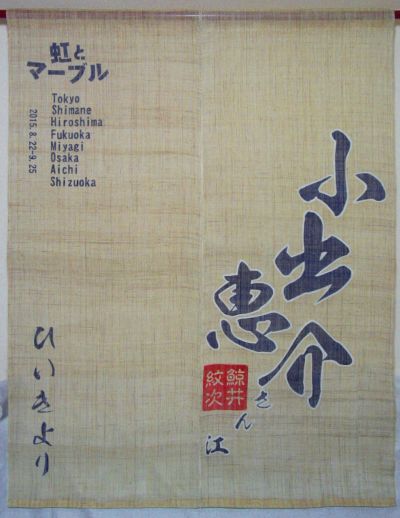 虹と
マーブル
Tokyo
Shimane
Hiroshima
Fukuoka
Miyagi
Osaka
Aichi
Shizuoka
2015.8.22-9.25
小出恵介
さん江
鯨井
紋次
ひいきより